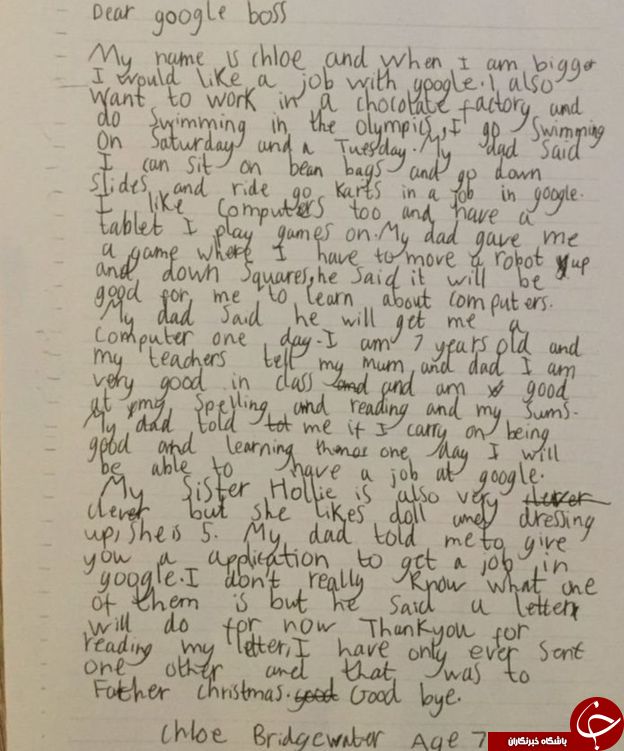 Dear google boss
My name is chloe and when I am bigger
I would like a job with google. I also
want to work in a chocolate factory and
do swimming in the olympics, I go swimming
on Saturday and a Tuesday. My dad said
I can sit on bean bags and go down
slides and ride go karts in a job in google.
I like computers too and have a
tablet I play games on. My dad gave me
a game where I have to move a robot up
and down squares, he said it will be
good for me to learn about computers.
My dad said he will get me a
computer one day. I am 7 years old and
my teachers tell my mum and dad I am
very good in class and and am good
at my spelling and reading and my sums.
My dad told me if I carry on being
good and learning one day I will
be able to have a job at google.
My Sister Hollie is also very clever
clever but she likes doll and dressing
up, she is 5. My dad told me to give
you a application to get a job in
google. I don't really know what one
of them is but he said a letter
will do for now Thankyou for
reading my letter, I have only ever sent
one other and that was to
Father christmas. good Good bye.
Chloe Bridgewater Age 7
باشگاه خبرنگاران